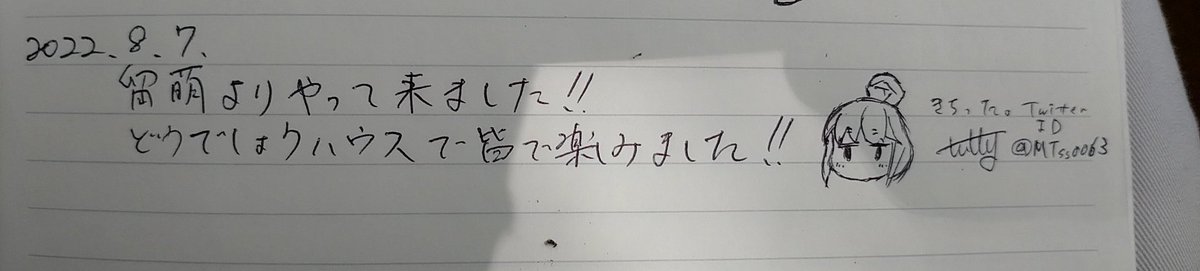 2022.8.7.
留萌よりやって来ました!!
どうでしょうハウスで皆で楽しみました!!
Twitter
ID
tutty @MTss0063